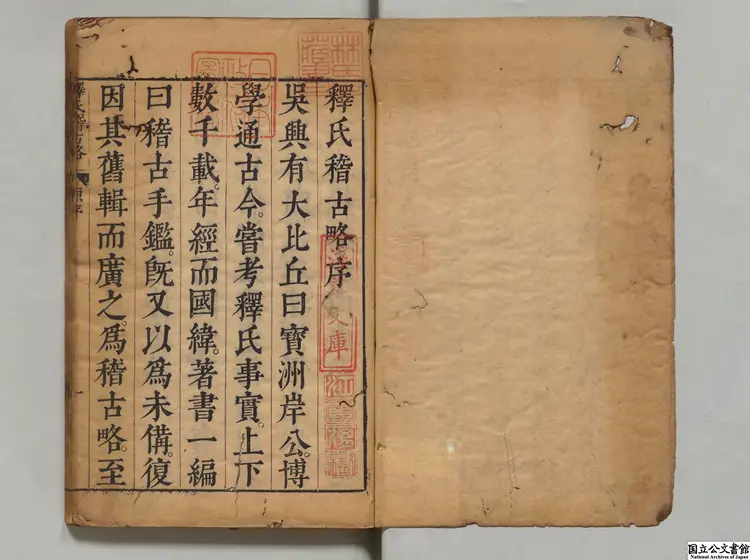 釋氏稽古略序
吳興有大比丘曰寶洲岸公。博
學通古今。嘗考釋氏事實。上下
數千載。年經而國緯。著書一編
曰稽古手鑑。旣又以爲未備。復
因其舊輯而廣之。爲稽古略。至
釋氏稽古略
文庫
国立公文書館
National Archives of Japan